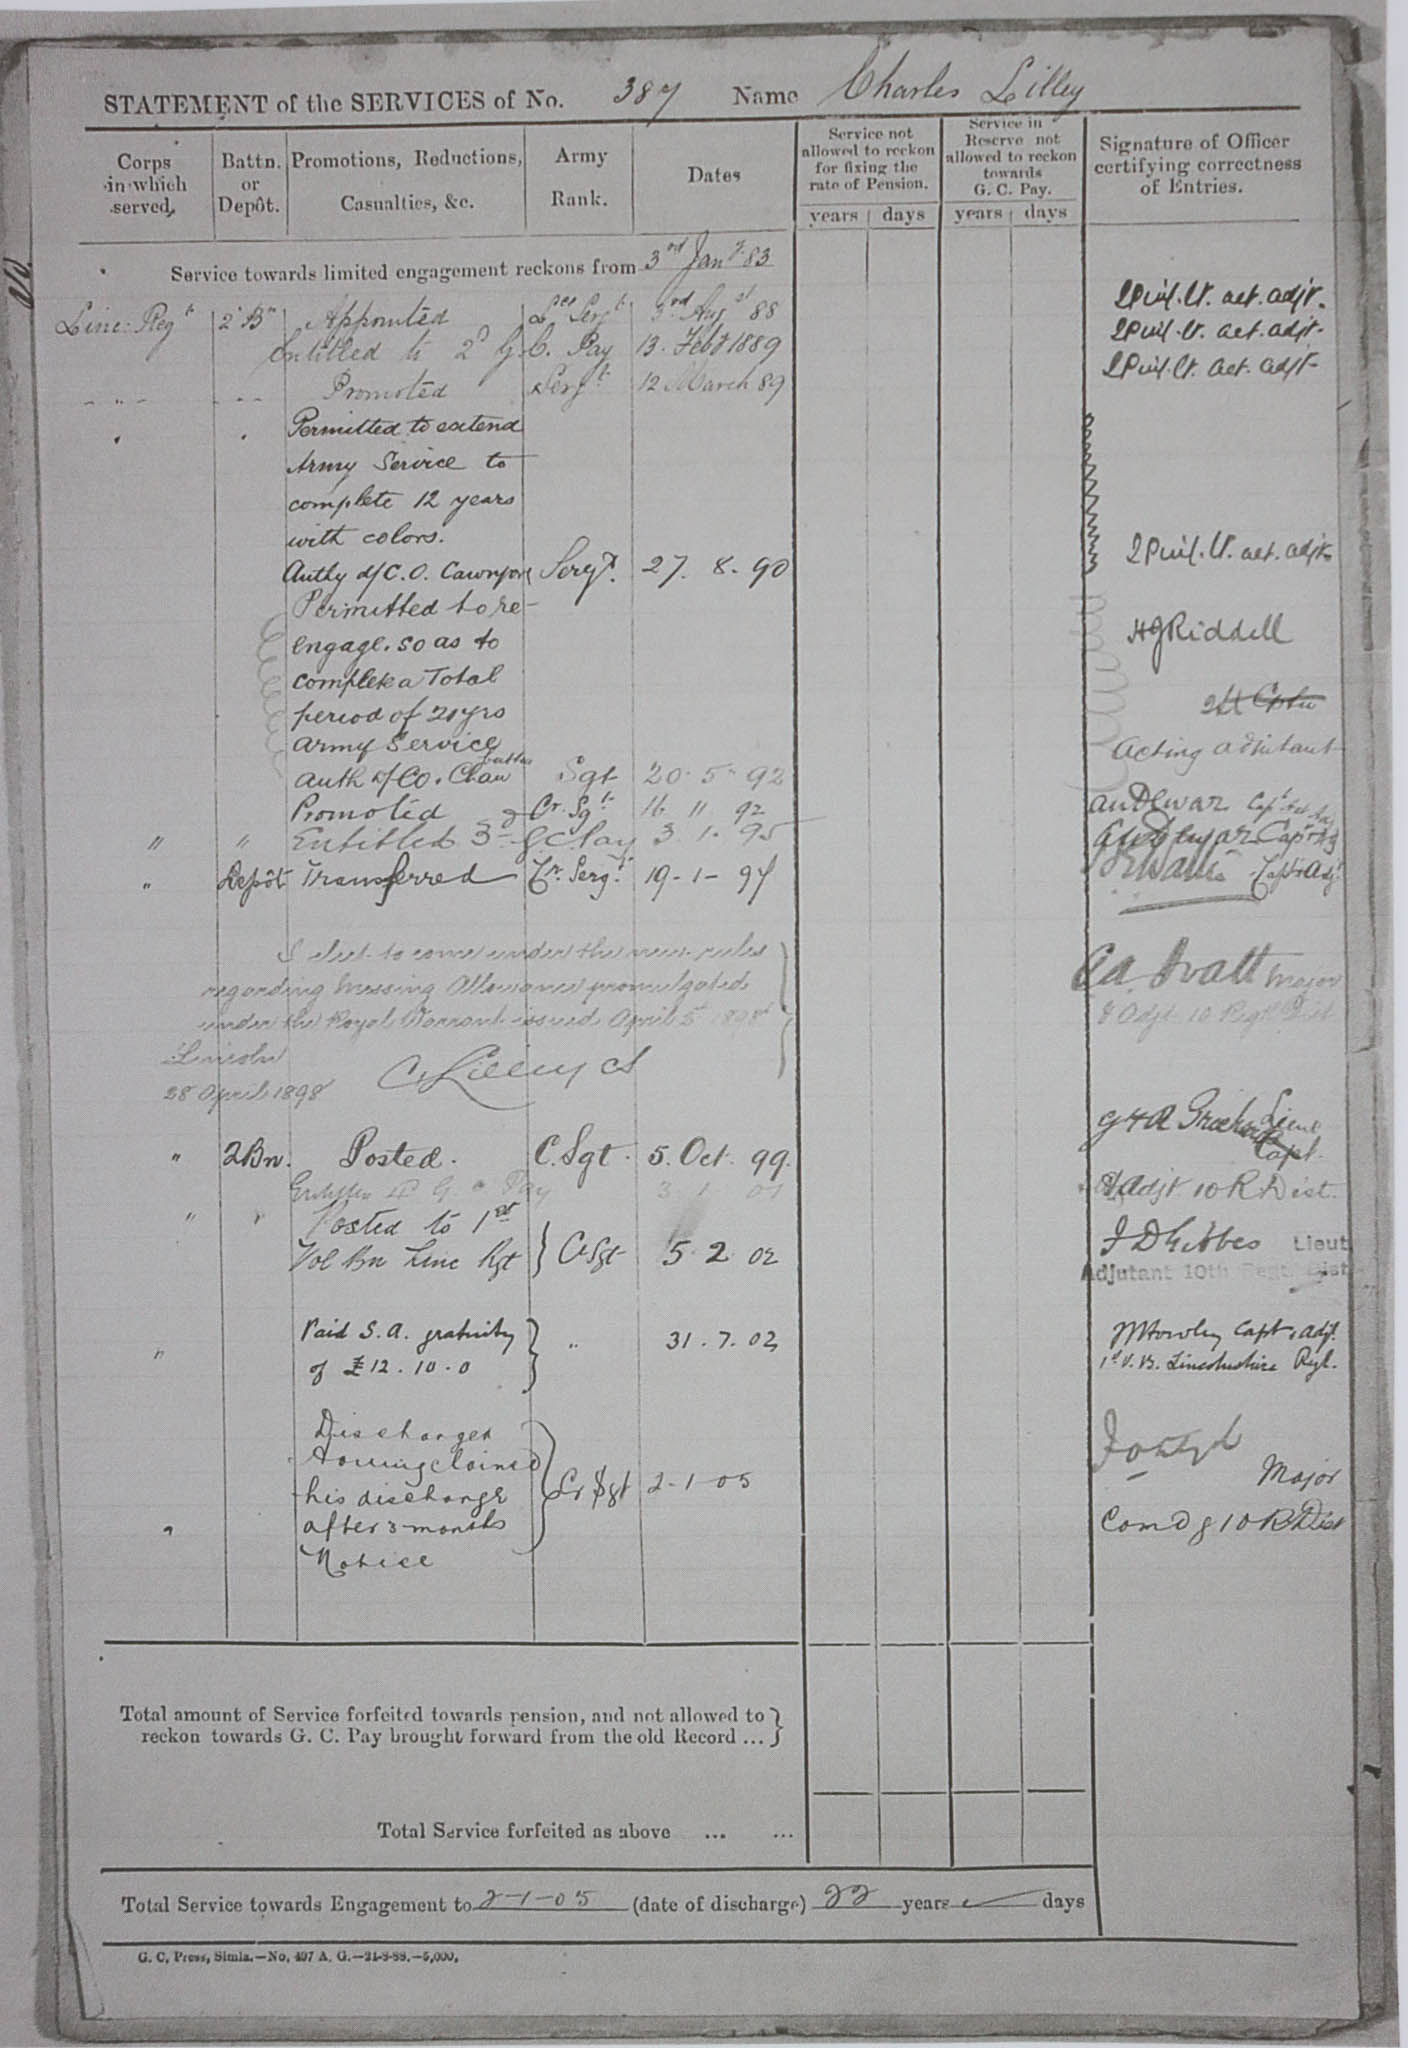 STATEMENT of the SERVICES of No. 387 Name Charles Lilley
Corps in which served. Battn. or Depôt. Promotions, Reductions, Casualties, &c. Army Rank. Dates Service not allowed to reckon for fixing the rate of Pension. Service in Reserve not allowed to reckon towards G. C. Pay. Signature of Officer certifying correctness of Entries.
years days years days
Service towards limited engagement reckons from 3rd Jany. 83
Linc: Regt 2 Bn Appointed Lce Sergt 3rd Aug st 88 Lt. act. adjt.
Entitled to 2d G. C. Pay 13. Feby 1889 Lt. act. adjt.
" " Promoted Sergt 12 March 89 Lt. act. adjt.
Permitted to extend
Army Service to
complete 12 years
with colors.
Authy d/C. O. Cawnpore Sergt. 27. 8. 90 Lt. act. adjt.
Permitted to re-
engage. so as to HJRiddell
complete a Total
period of 21 yrs
Army Service Acting adjutant
auth d/Co. Sgt 20. 5. 92
Promoted Cr. Sgt 16 11 92 Capt
" " Entitled 3rd G C Pay 3. 1. 95 Capt
" Depôt Transferred Cr. Sergt. 19-1-97 Capt & Adjt
I elect to come under the new rules
regarding Messing Allowance promulgated Major
under the Royal Warrant issued April 5 1898 & Adjt 10 Regtl Dist
Lincoln
28 April 1898 C Lilley CS
" 2Bn. Posted. C. Sgt. 5. Oct. 99. Capt.
Entitled G C Pay 3 1 01 & Adjt 10 R Dist.
" " Posted to 1st
Vol Bn Linc Rgt } C Sgt 5. 2 02 Lieut
Adjutant 10th Regt. Dist
" Paid S. A. gratuity
of £12. 10. 0 } " 31. 7. 02 Capt, adjt.
1st V. B. Lincolnshire Regt.
Discharged
having claimed
his discharge Cr Sgt 2-1-05 Major
" after 3 months Comdg 10 R Dist
Notice
Total amount of Service forfeited towards pension, and not allowed to
reckon towards G. C. Pay brought forward from the old Record ... }
Total Service forfeited as above ... ...
Total Service towards Engagement to 2-1-05 (date of discharge) 22 years days
G. C. Press, Simla.—No. 497 A. G.—21-8-88.—5,000.